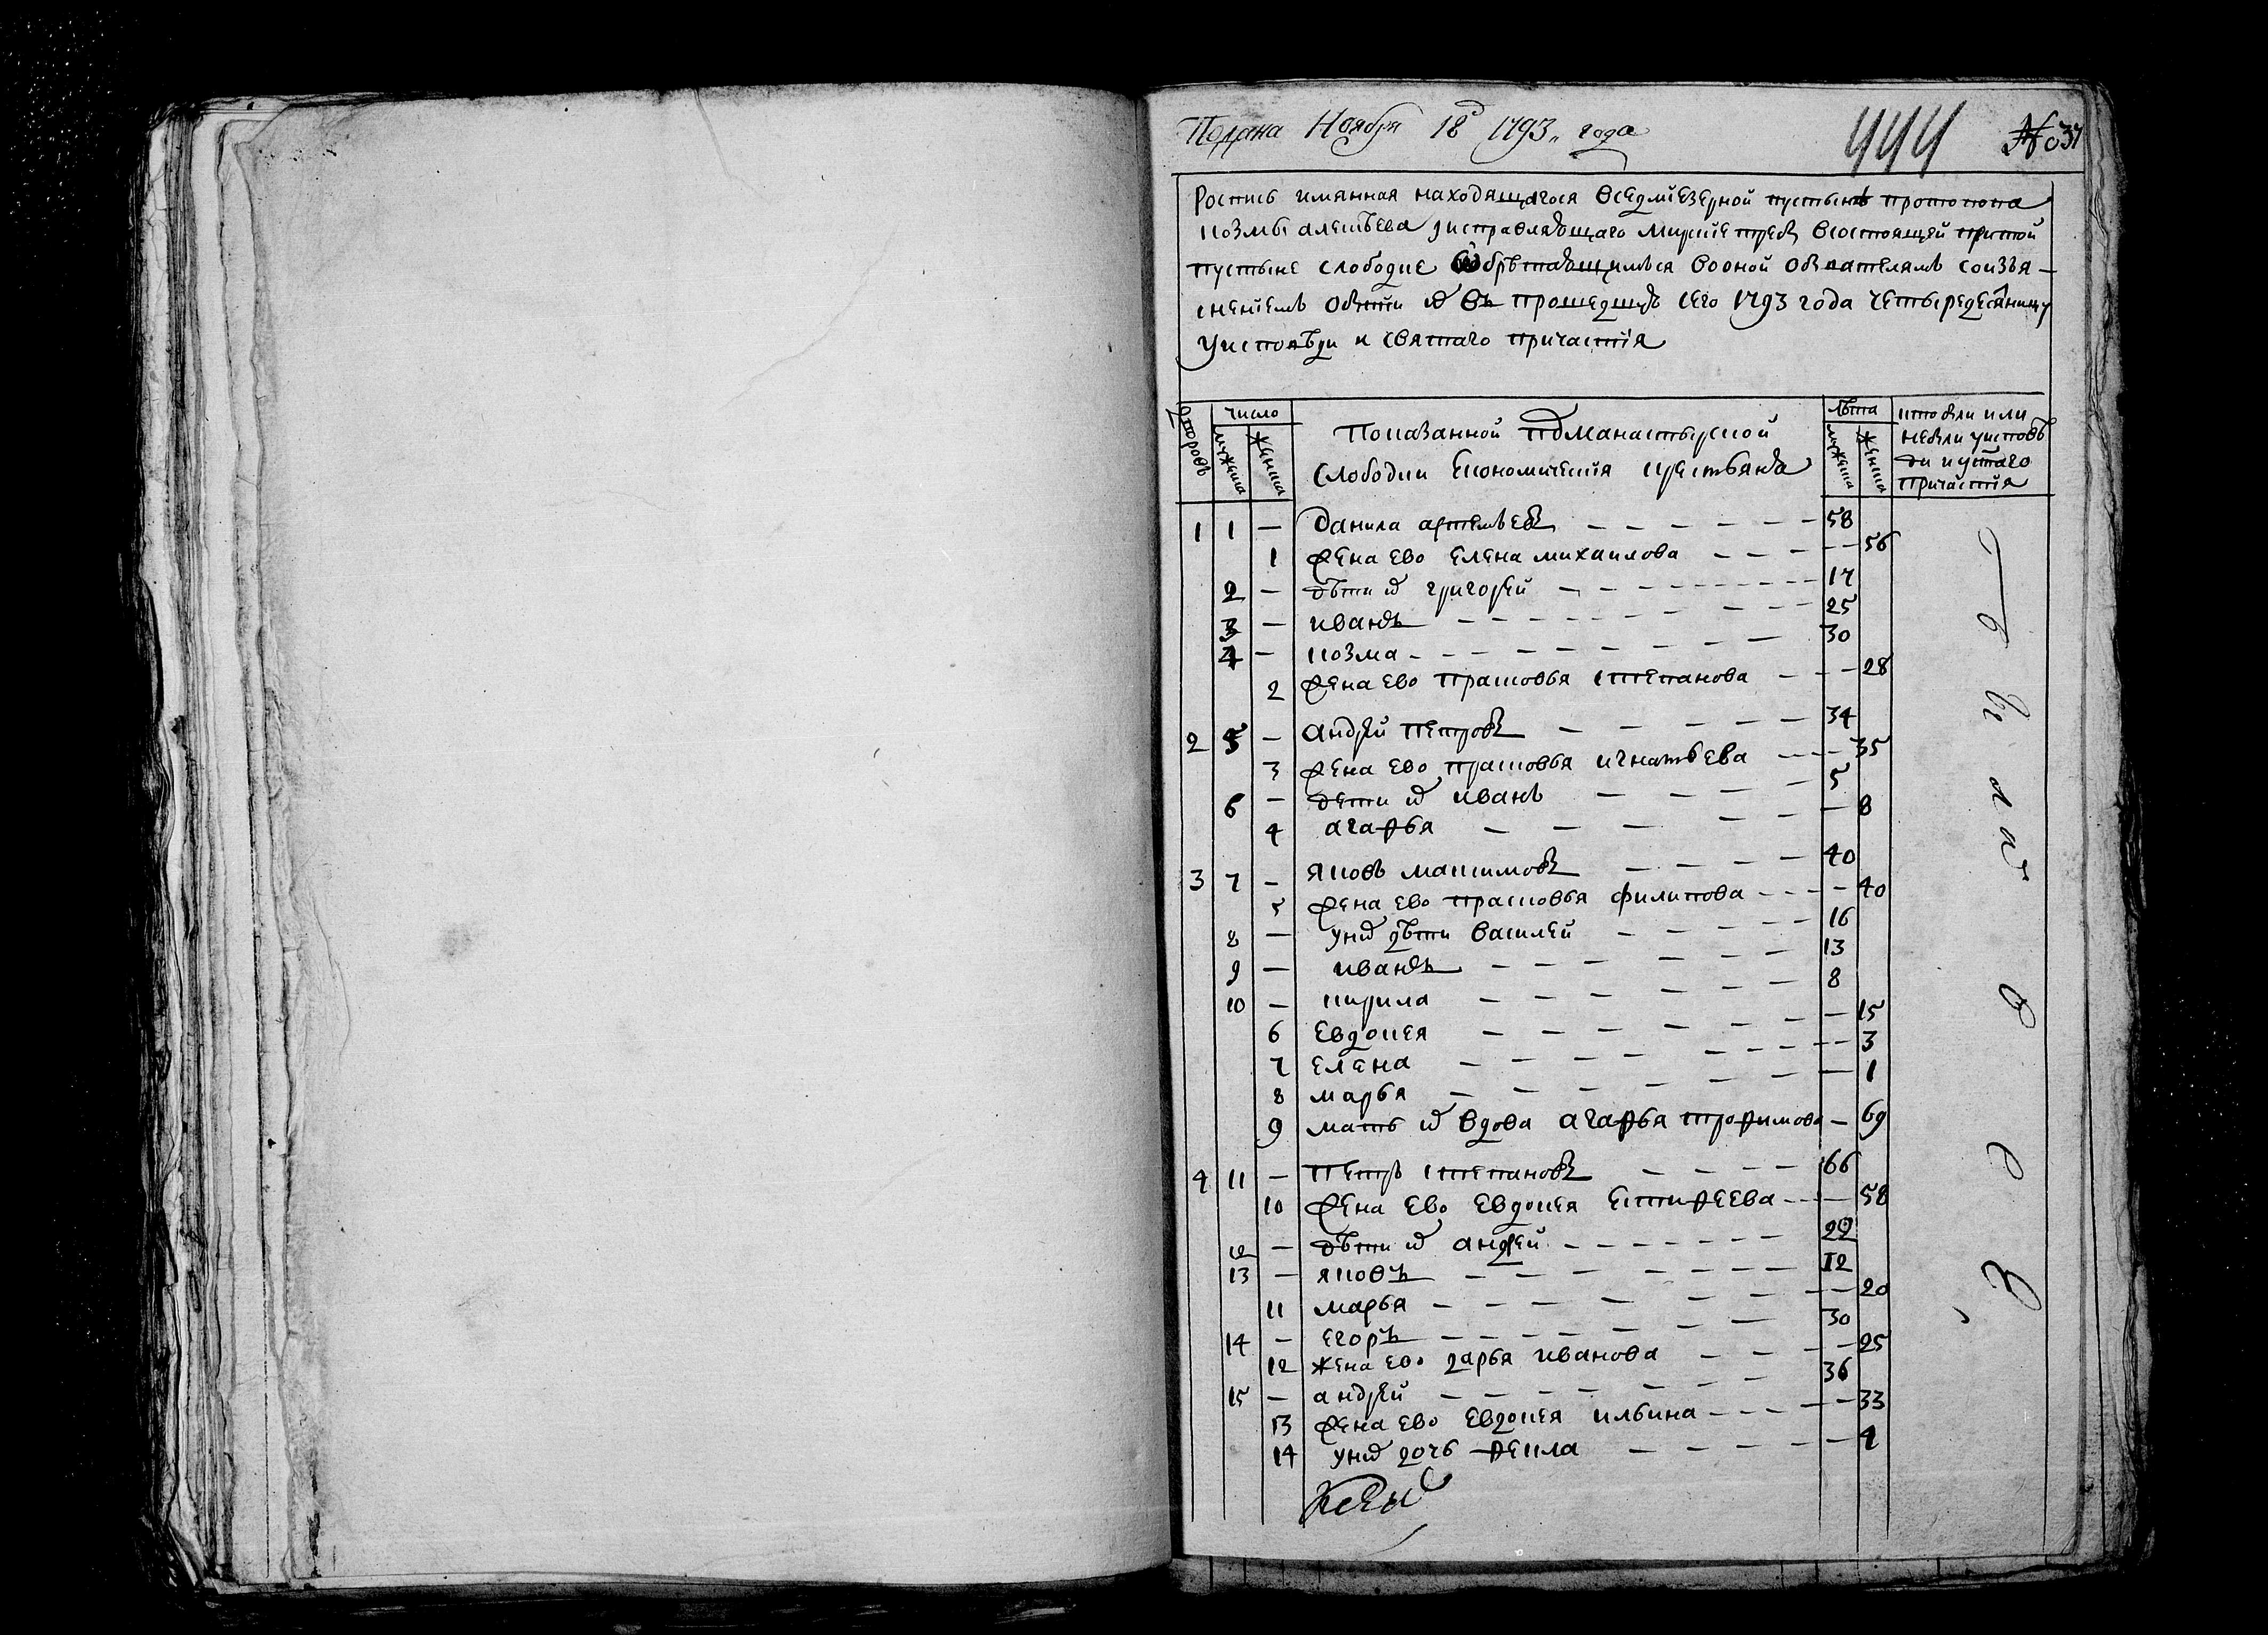 Подана Ноября 18 д 1793 „ года
444 № 37
Роспись имянная находящагося Вседмiезерной пустынѣ протопопа
Козмы алеѯѣева исправляющаго Мирскiе требы Всостоящей притой
пустыне слободке обрѣтающимься Вооной обывателямъ соизъя-
сненiемъ обытiи ихъ Въ прошедшую сего 1793 года четыредесятницу
уисповѣди и святаго причастiя
Дворовъ число мужеска женска
Показанной подманастырской
Слободки Економическiя крестьяна
лѣта мужеска женска
ктобыли или
небыли уисповѣ
ди и святаго
причастiя
1 1 — Данила артемьевъ — 58
1 жена ево елена михаилова — 56
2 — дѣти ихъ григорей — 17
3 — иванъ — 25
4 — козма — 30
2 жена ево прасковья степанова — 28
2 5 — андрей петровъ — 34
3 жена ево прасковья игнатьева — 35
6 — дети ихъ иванъ — 5
4 агафья — 8
3 7 — яковъ максимовъ — 40
5 жена ево прасковья филипова — 40
8 — унихъ дѣти василей — 16
9 — иванъ — 13
10 — кирила — 8
6 евдокея — 15
7 елена — 3
8 марья — 1
9 мать ихъ вдова агафья трофимова — 69
4 11 — петръ степановъ — 66
10 жена ево евдокея естифеева — 58
12 — дѣти ихъ андрей — 22
13 — яковъ — 12
11 марья — 20
14 — егоръ — 30
12 жена ево дарья иванова — 25
15 — андрей — 36
13 жена ево евдокея ильина — 33
14 унихъ дочь фекла — 4